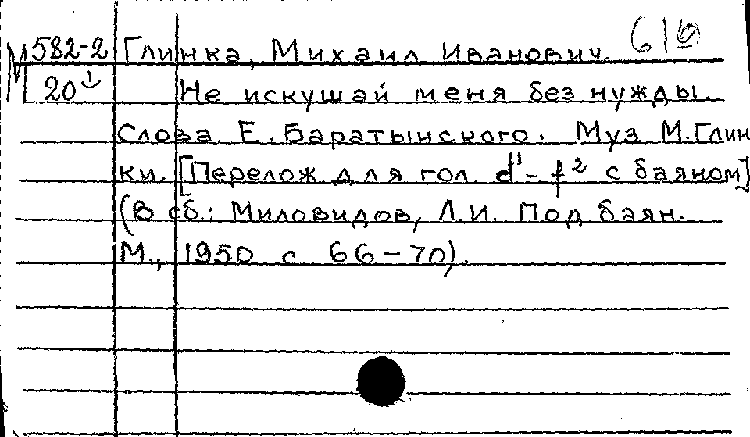 М 582-2 Глинка, Михаил Иванович.
20 Не искушай меня без нужды.
Слова Е. Баратынского. Муз М. Глин
ки. [Перелож. для гол d¹-f² с баяном]
(В сб.: Миловидов, Л.И. Под баян.
М., 1950 с 66-70).